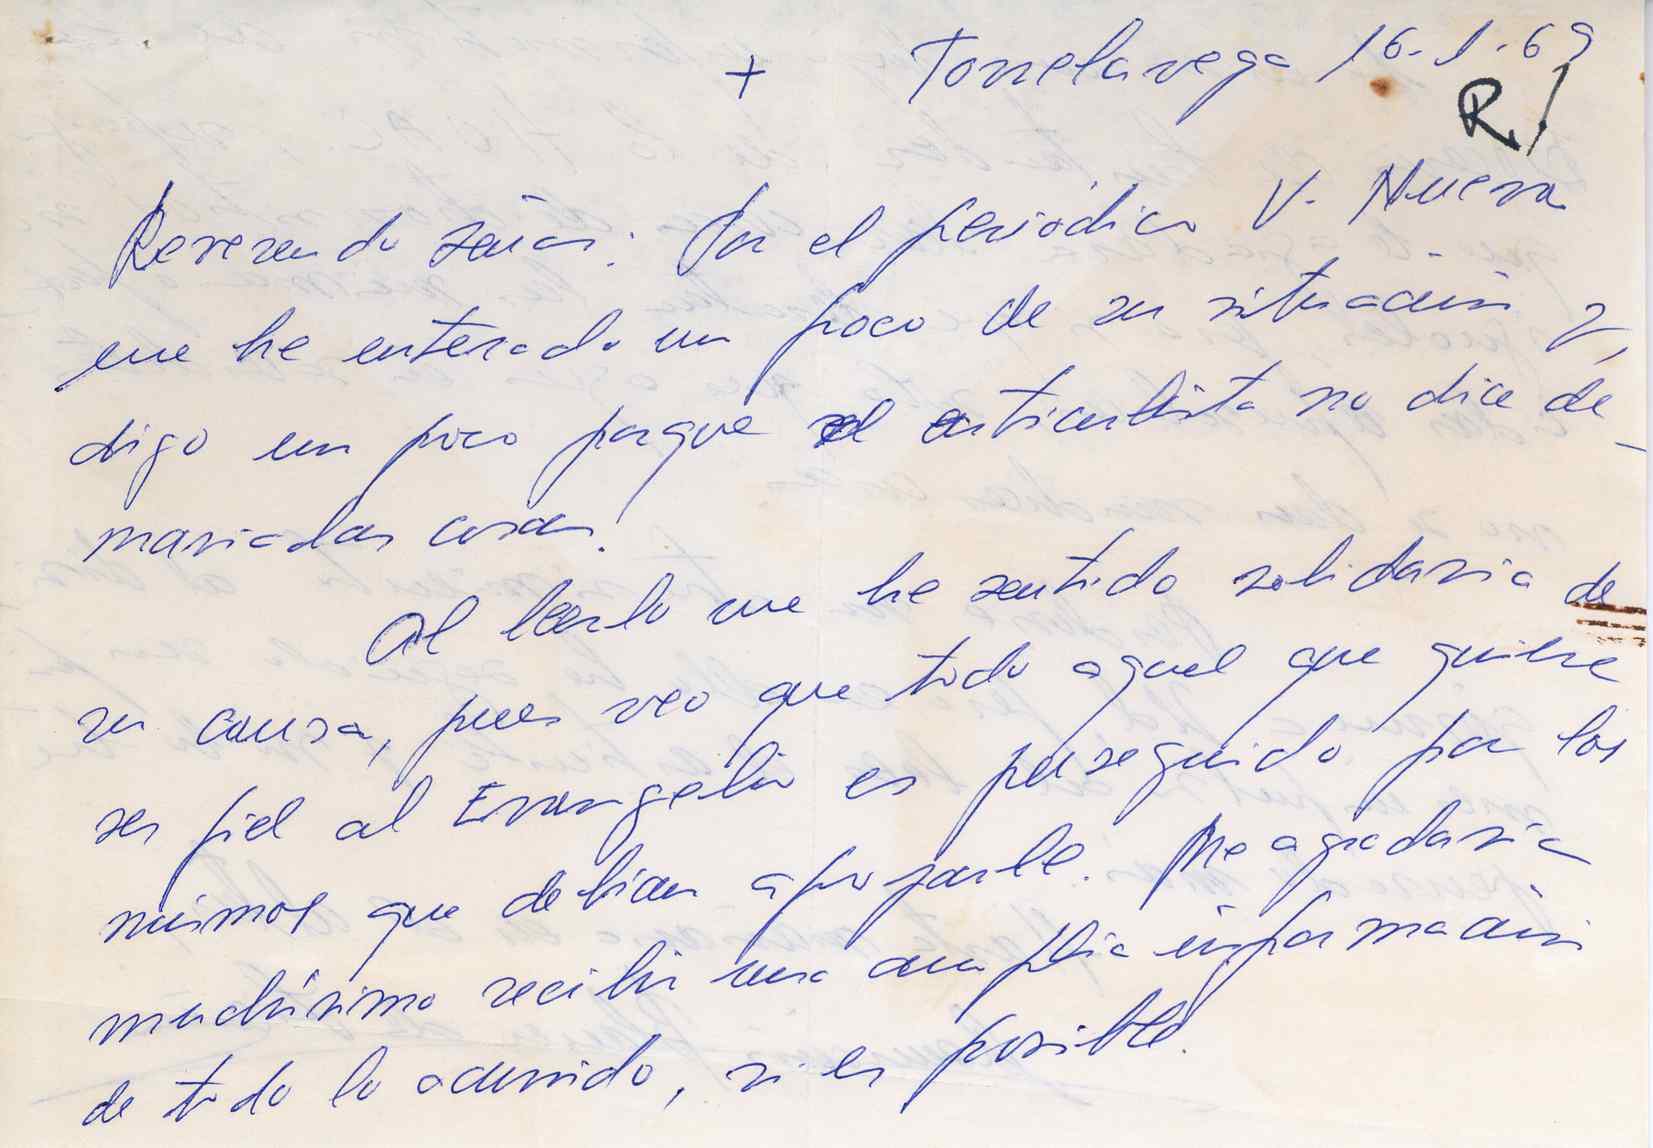 + Torrelavega 16-1-69
R./
Reverendo señor: Por el periódico V. Nueva
me he enterado un poco de su situación y,
digo un poco porque el articulista no dice de-
masiadas cosas!
Al leerlo me he sentido solidaria de
su causa, pues veo que todo aquel que quiere
ser fiel al Evangelio es perseguido por los
mismos que debían apoyarle. Me agradaría
muchísimo recibir una amplia información
de todo lo ocurrido, si es posible.